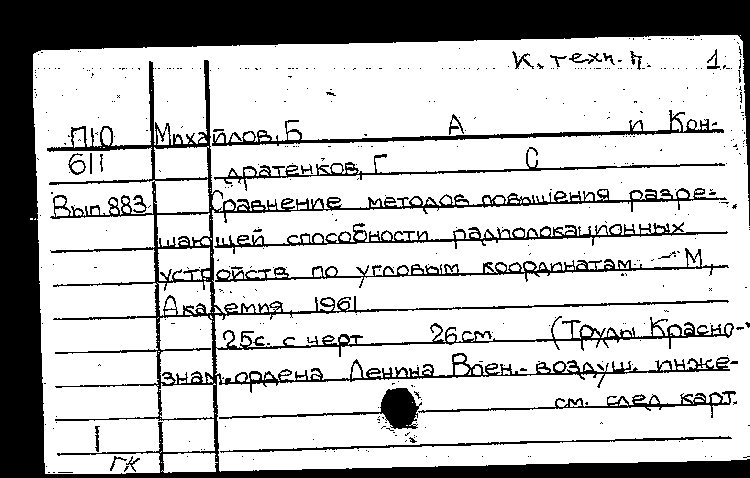 К. техн. п. 1.
П10 Михайлов, Б А и Кон-
611 дратенков, Г С
Вып. 883 Сравнение методов повышения разре-
шающей способности радиолокационных
устройств по угловым координатам. - М.,
Академия, 1961
25с. с черт 26 см. (Труды Красно-
знам. ордена Ленина Воен.- воздуш. инже-
см. след карт.
1
гк